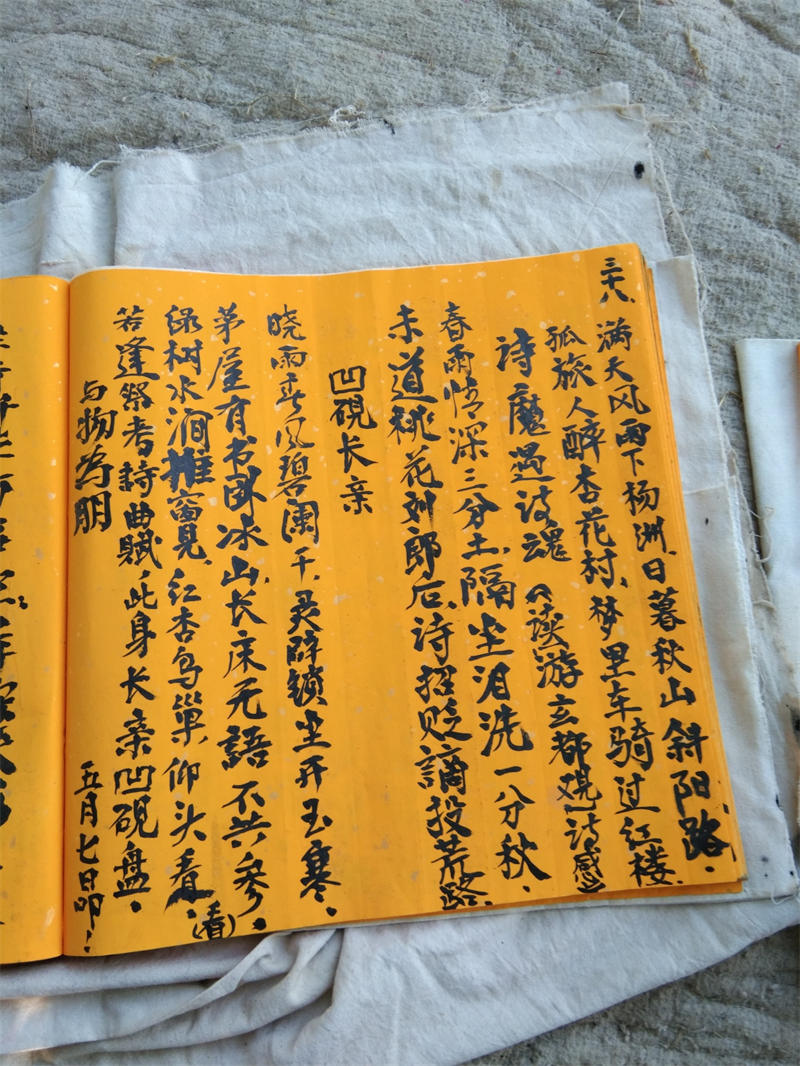 三十八、满天风雨下杨洲、日暮秋山斜阳路、
孤旅人醉杏花村、梦里车骑过红楼、
诗魔遇诗魂《读游玄都观诗感》
春雨情深三分土、隔尘泪洗一分秋、
未道桃花刘郎后、诗招贬谪投荒路、
凹砚长亲
晓雨春风碧阑干、灵辟锁尘开玉寒、
茅屋有书卧冰山、长床无語不共参、
绿树水涧推窗见、红杏鸟巢仰头看、
(看)
若逢祭者詩曲赋、此身长亲凹砚盘、
与物为朋
五月七日印、！